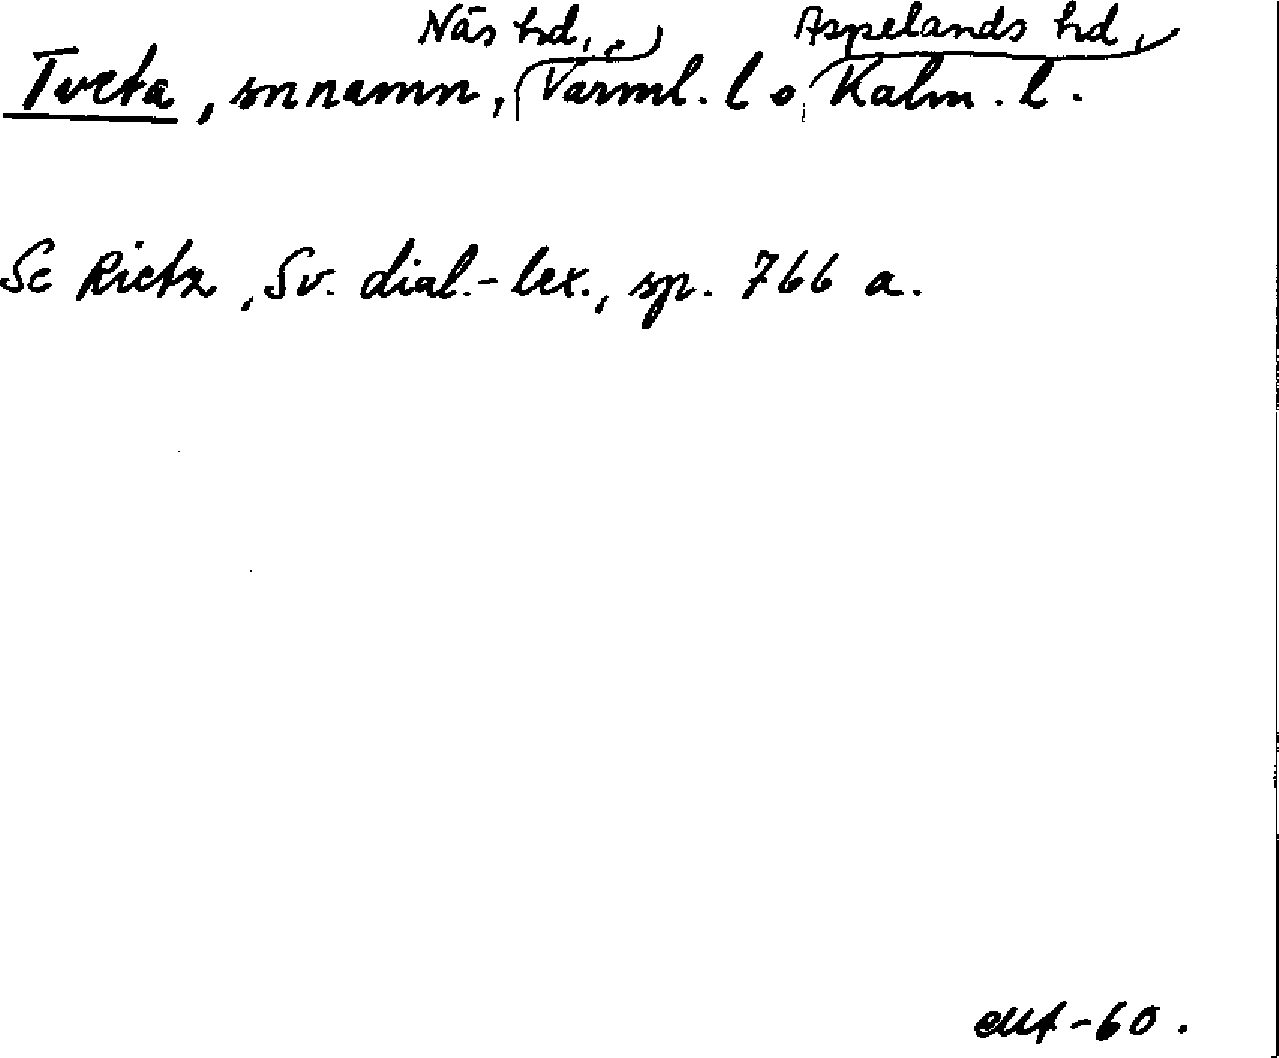 Näs hd, Aspelands hd,
Tveta, snnamn, Värml. l o, Kalm. l.
Se Rietz, Sv. dial.-lex., sp. 766 a.
-60.